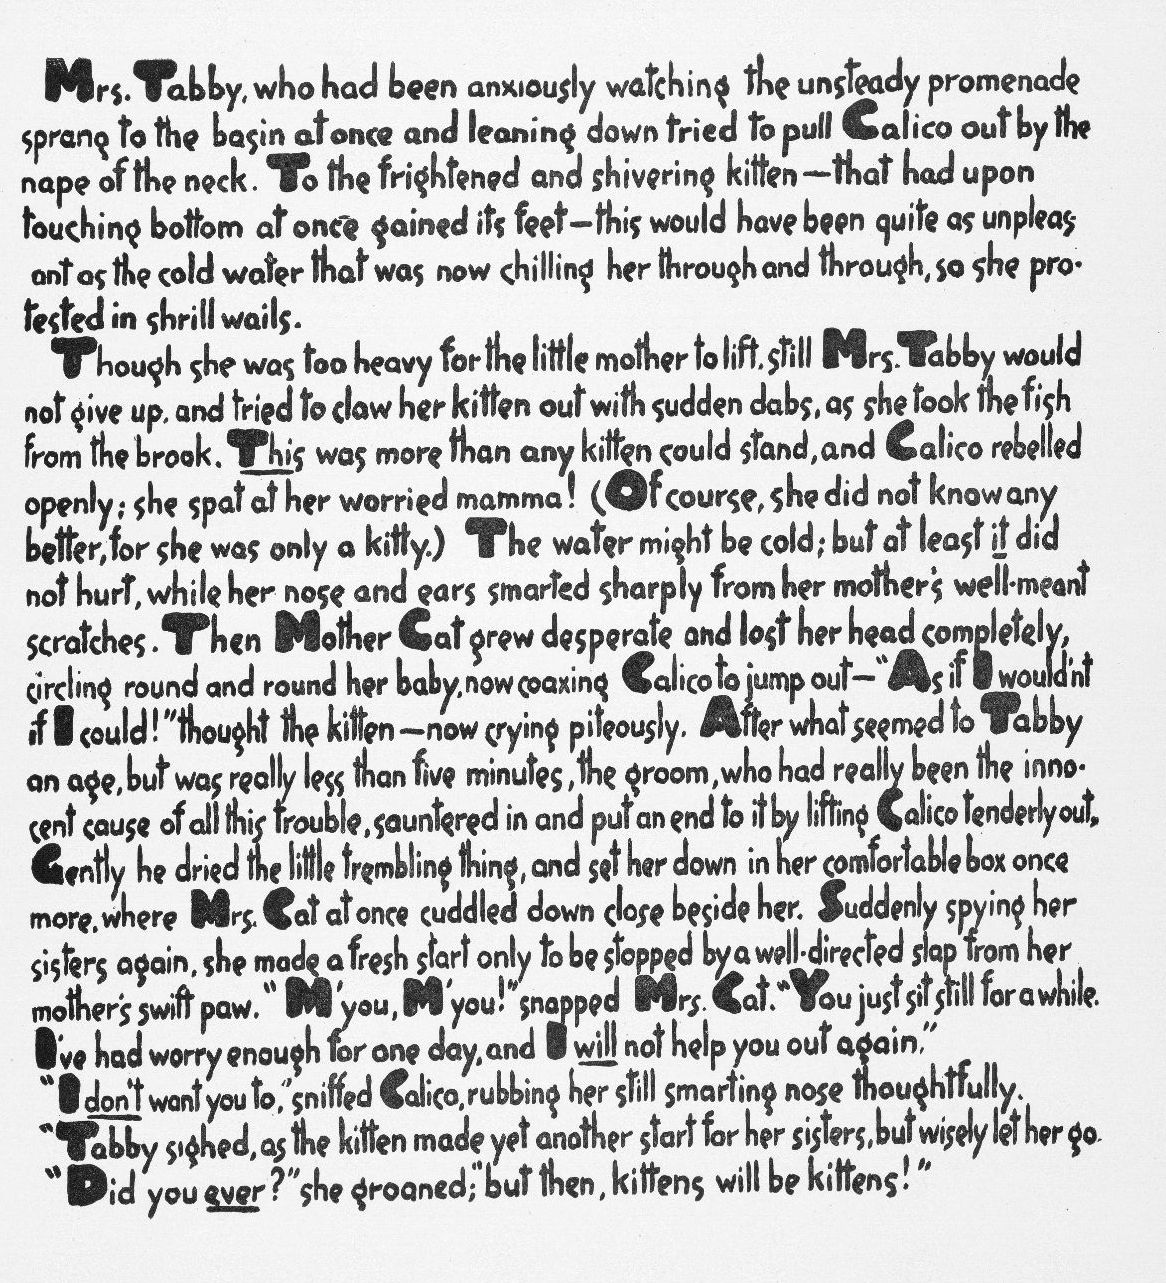 Mrs. Tabby, who had been anxiously watching the unsteady promenade
sprang to the basin at once and leaning down tried to pull Calico out by the
nape of the neck. To the frightened and shivering kitten—that had upon
touching bottom at once gained its feet—this would have been quite as unpleas-
ant as the cold water that was now chilling her through and through, so she pro-
tested in shrill wails.
Though she was too heavy for the little mother to lift, still Mrs. Tabby would
not give up, and tried to claw her kitten out with sudden dabs, as she took the fish
from the brook. This was more than any kitten could stand, and Calico rebelled
openly; she spat at her worried mamma! (Of course, she did not know any
better, for she was only a kitty.) The water might be cold; but at least it did
not hurt, while her nose and ears smarted sharply from her mother's well-meant
scratches. Then Mother Cat grew desperate and lost her head completely,
circling round and round her baby, now coaxing Calico to jump out—"As if I would'nt
if I could!" thought the kitten—now crying piteously. After what seemed to Tabby
an age, but was really less than five minutes, the groom, who had really been the inno-
cent cause of all this trouble, sauntered in and put an end to it by lifting Calico tenderly out,
Gently he dried the little trembling thing, and set her down in her comfortable box once
more, where Mrs. Cat at once cuddled down close beside her. Suddenly spying her
sisters again, she made a fresh start only to be stopped by a well-directed slap from her
mother's swift paw. "M'you, M'you!" snapped Mrs. Cat. "You just sit still for a while.
I've had worry enough for one day, and I will not help you out again."
"I don't want you to," sniffed Calico, rubbing her still smarting nose thoughtfully.
"Tabby sighed, as the kitten made yet another start for her sisters, but wisely let her go.
"Did you ever?" she groaned; "but then, kittens will be kittens!"